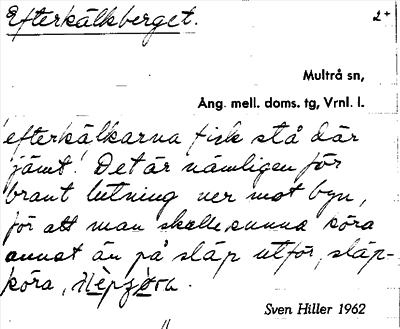 Efterkälkberget.
2+
Multrå sn,
Ång. mell. doms. tg, Vrnl. l.
'efterkälkarna fick stå där
jämt.' Det är nämligen för
brant lutning ner mot byn,
för att man skulle kunna köra
annat än på släp utför, släp-
köra,
Sven Hiller 1962